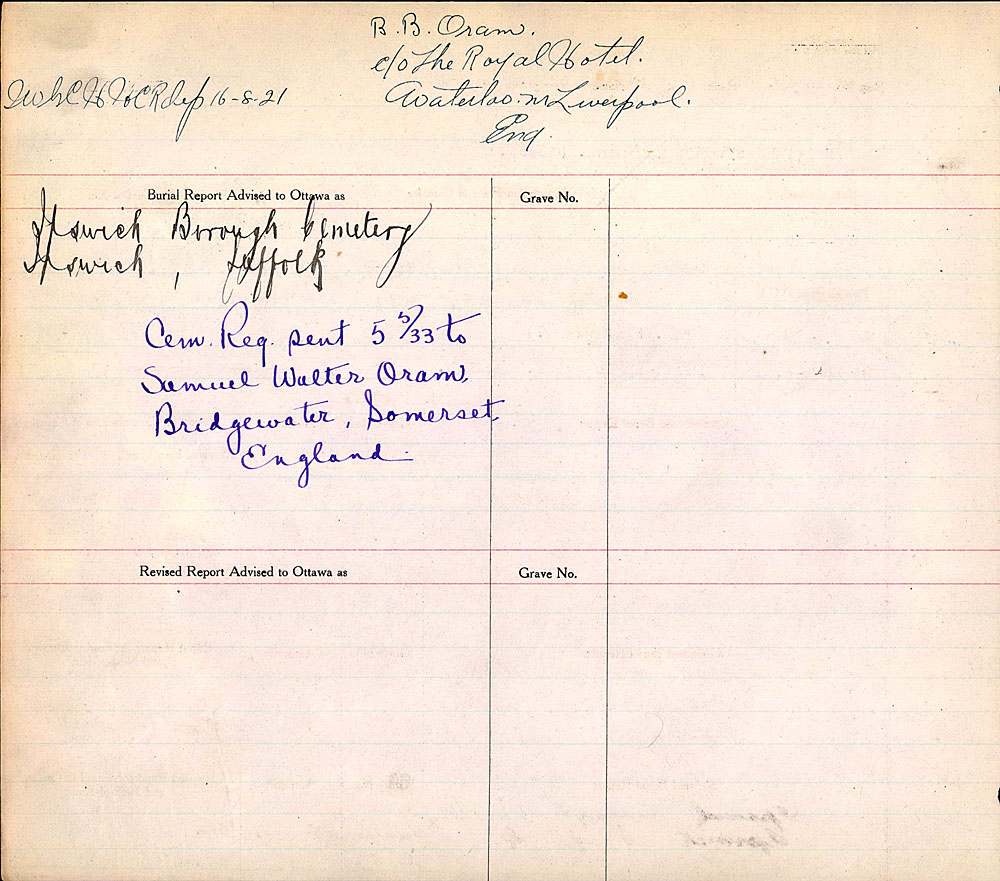 B. B. Oram.
c/o The Royal Hotel.
Waterloo. nr Liverpool.
Eng.
16-8-21
Burial Report Advised to Ottawa as
Grave No.
Ipswich Borough Cemetery
Ipswich , Suffolk
Cem. Reg. sent 5 5/33 to
Samuel Walter Oram,
Bridgewater, Somerset,
England.
Revised Report Advised to Ottawa as
Grave No.